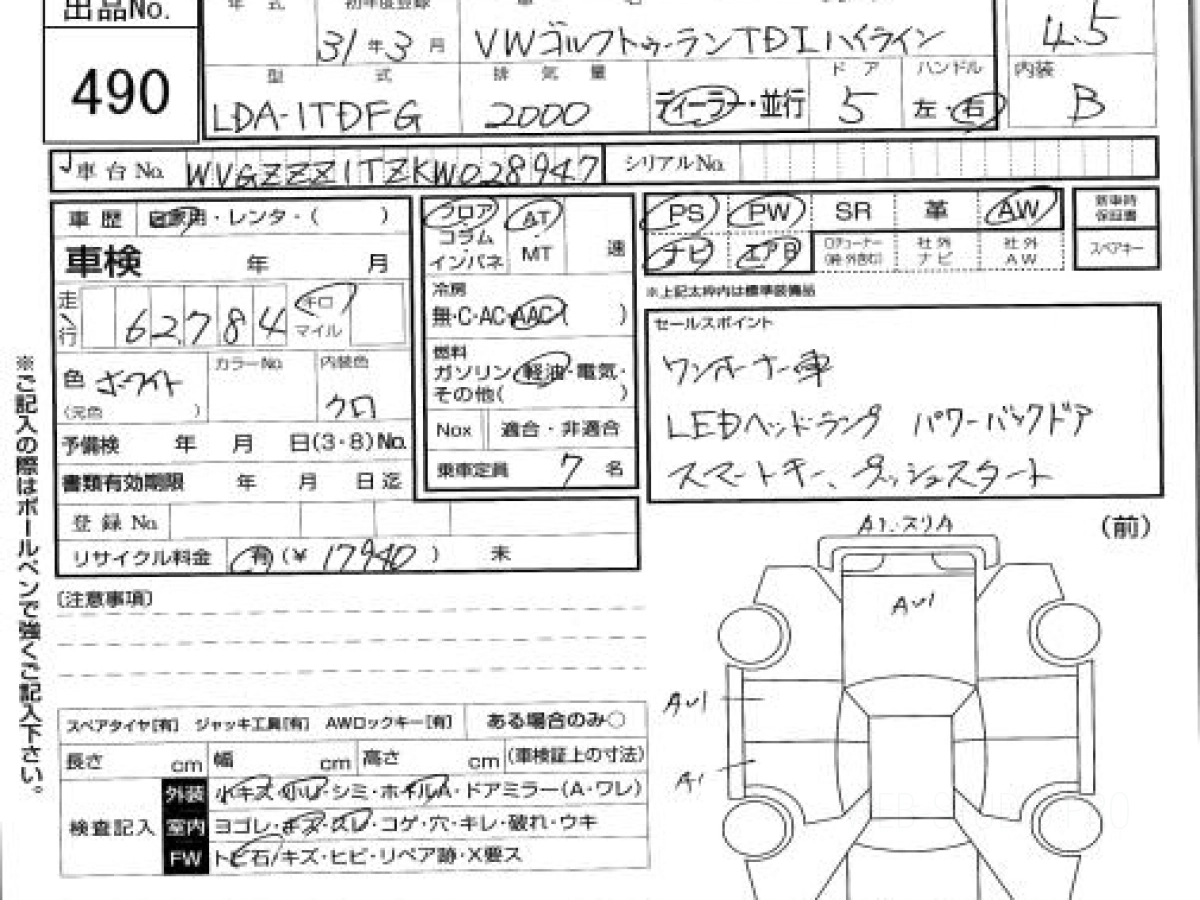 出品No.
490
年 式 初年度登録 車 名
31年3月 VWゴルフトゥーランTDIハイライン
4.5
型 式 排 気 量 ディーラー・並行 ドア ハンドル 内装
LDA-1TDFG 2000 5 左・右 B
車台No. WVGZZZ1TZKW028947 シリアルNo.
車歴 自家用・レンタ・( )
フロア コラム インパネ
AT・MT 速
PS PW SR 革 AW
新車時保証書
ナビ エアB
社外ナビ 社外AW
スペアキー
※上記太枠内は標準装備品
車検 年 月
走行 62,784 キロ マイル
冷房
無・C・AC・AAC( )
燃料
ガソリン・軽油・電気・
その他( )
Nox 適合・非適合
乗車定員 7名
色 ホワイト
(元色 )
カラーNo. 内装色
クロ
予備検 年 月 日(3・8)No.
書類有効期限 年 月 日迄
登録No.
リサイクル料金 有(¥ 17940 ) 未
セールスポイント
ワンオーナー車
LEDヘッドランプ パワーバックドア
スマートキー、プッシュスタート
※ご記入の際はボールペンで強くご記入下さい。
〔注意事項〕
スペアタイヤ[有] ジャッキ工具[有] AWロックキー[有] ある場合のみ○
長さ cm 幅 cm 高さ cm (車検証上の寸法)
検査記入
外装 小キズ・小U・シミ・ホイルA・ドアミラー(A・ワレ)
室内 ヨゴレ・キズ・スレ・コゲ・穴・キレ・破れ・ウキ
FW トビ石/キズ・ヒビ・リペア跡・X要ス
A1.スリA
(前)
AU1
AU1
A1